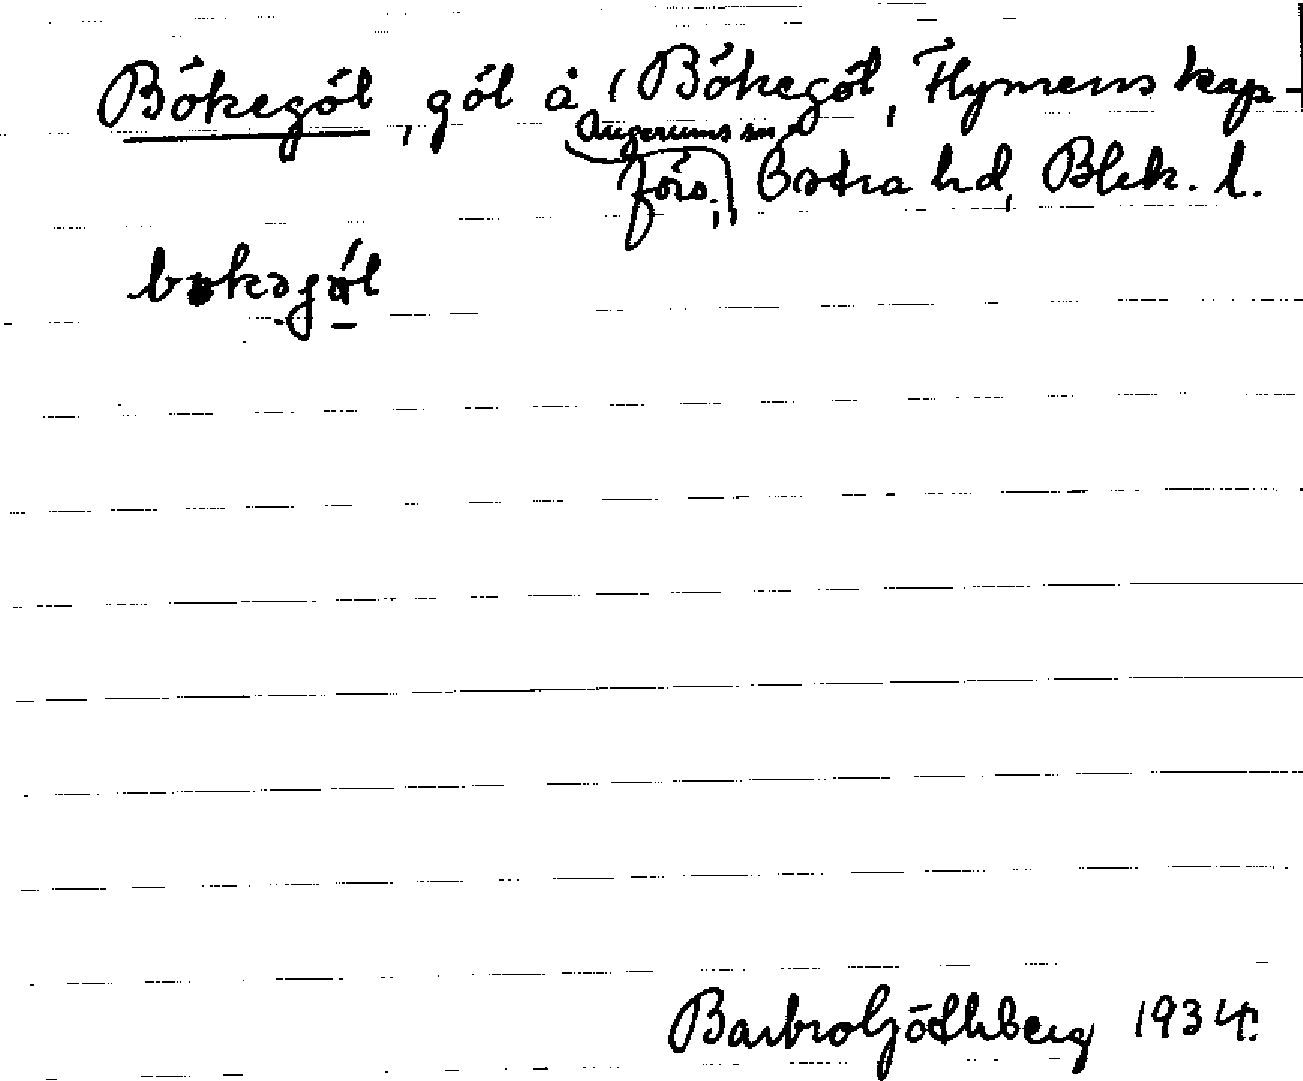 Bökegöl, göl å (Bökegöl, Flymens kap-
Augerums sn
förs.), Östra hd, Blek. l.
Barbro Göthberg 1934.